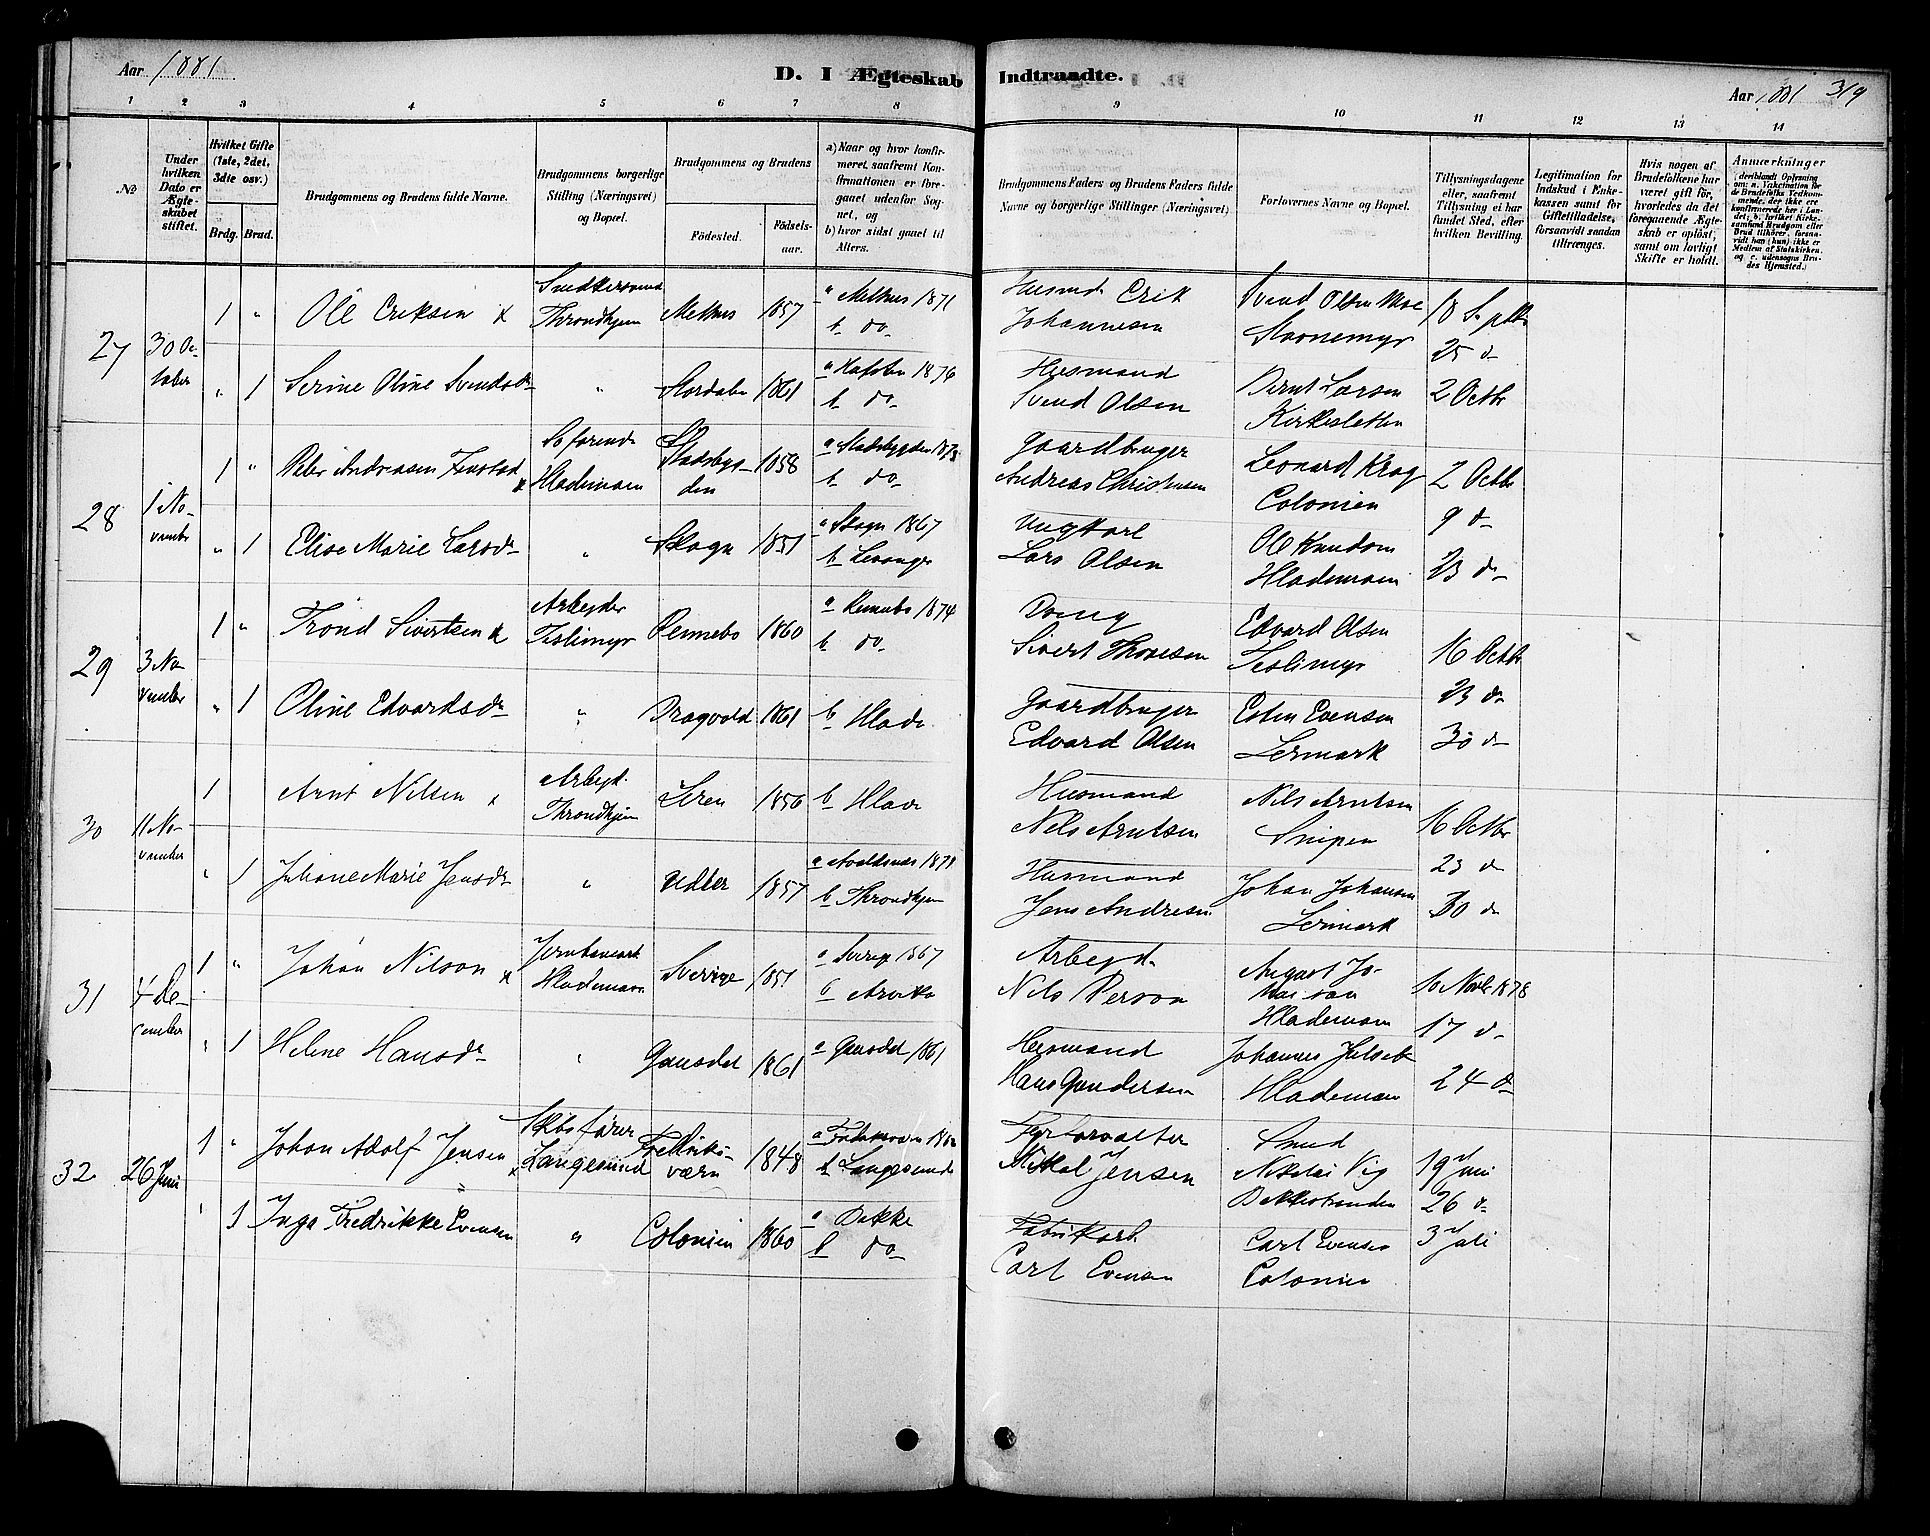 Aar 1881
D. I Ægteskab Indtraadte.
Aar 1881 319
1 2 3 4 5 6 7 8 9 10 11 12 13 14
No
Under hvilken Dato er Ægteskabet stiftet.
Hvilket Gifte (1ste, 2det, 3die osv.)
Brdg. Brud.
Brudgommens og Brudens fulde Navne.
Brudgommens borgerlige Stilling (Næringsvei) og Bopæl.
Brudgommens og Brudens
Fødested.
Fødselsaar.
a) Naar og hvor konfirmeret, saafremt Konfirmationen er foregaaet udenfor Sognet, og
b) hvor sidst gaaet til Alters.
Brudgommens Faders og Brudens Faders fulde Navne og borgerlige Stillinger (Næringsvei)
Forlovernes Navne og Bopæl.
Tillysningsdagene eller, saafremt Tillysning ei har fundet Sted, efter hvilken Bevilling.
Legitimation for Indskud i Enkekassen samt for Giftetilladelse, forsaavidt saadan tiltrænges.
Hvis nogen af Brudefolkene har været gift før, hvorledes da det foregaaende Ægteskab er opløst, samt om lovligt Skifte er holdt.
Anmærkninger
(deriblandt Oplysning om: a. Vakcination for de Brudefolks Vedkommende, der ikke ere konfirmerede her i Landet; b. hvilket Kirkesamfund Brudgom eller Brud tilhører, forsaavidt han (hun) ikke er Medlem af Statskirken, og c. udensogns Brudes Hjemsted.)
27 30 October 1 " Ole Eriksen x Snedkersvend Throndhjem Melhus 1857 a Melhus 1871 b do Husmd. Erik Johannesen Svend Olsen Moe Stavnemyr 18 Septbr 25 d
" 1 Serine Oline Svendsdr " Stordalen 1861 b do Husmand Svend Olsen Bernt Larsen Kirkesletten 2 Octbr
28 1 November 1 " Peter Andreasen x Søfarende Hlademoen Stadsbygden 1858 a Stadsbygden b do Gaardbruger Andreas Christensen Leonard Krog Colonien 2 Octbr 9 d
" 1 Elise Marie Larsdr " Skogn 1851 a Skogn 1867 b Levanger Ungkarl Lars Olsen Ole Knudsen Hlademoen 23 d
29 3 November 1 " Trond Sivertsen x Arbeyder Rennebo 1860 a Rennebo 1874 b do Sivert Edvard Olsen 16 Octbr 23 d
" 1 Oline Edvardsdr " Dragvold 1861 b Hlade Gaardbruger Edvard Olsen Esten Evensen Lermark 30 d
30 11 November 1 Arnt Nilsen x Arbeyd. Throndhjem Leren 1856 b Hlade Husmand Nils Arntsen Nils Arntsen 16 Octbr 23 d
" 1 Juliane Marie Jensdr " 1857 b Throndhjem Husmand Jens Andresen Johan Johansen Lermark 30 d
31 4 December 1 " Johan Nilson x Hlademoen Sverige 1851 a Sverige 1867 b Arvika Arbeyd. Nils Person August Hlademoen 10 Novbr 1878 17 d
" 1 Helene Hansdr " Gausdal 1861 a Gausdal 1861 Husmand Hans Gundersen Johannes Hlademoen 24 d
32 26 Juni 1 " Johan Adolf Jensen x Skibsfører Langesund Fredriksværn 1848 b Langesund Fyrforvalter Mikal Jensen Smed Nikolai Vig Bakkestranden 19 Juni 26 d
" 1 Inga Fredrikke Evensen " Colonien 1860 a Bakke b do Fabrikarb Carl Evensen Carl Evensen Colonien 3 Juli